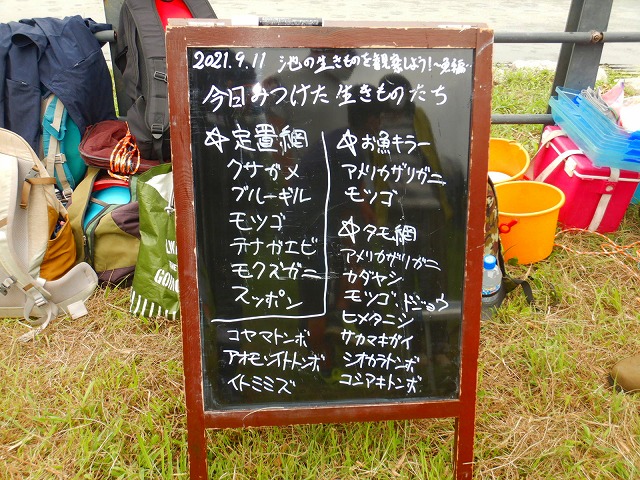 2021.9.11 池の生きものを観察しよう!~夏編~
今日みつけた生きものたち
☆定置網
クサガメ
ブルーギル
モツゴ
テナガエビ
モクズガニ
スッポン
コヤマトンボ
アオモンイトトンボ
イトミミズ
☆お魚キラー
アメリカザリガニ
モツゴ
☆タモ網
アメリカザリガニ
カダヤシ
モツゴ ドジョウ
ヒメタニシ
サカマキガイ
シオカラトンボ
コシアキトンボ